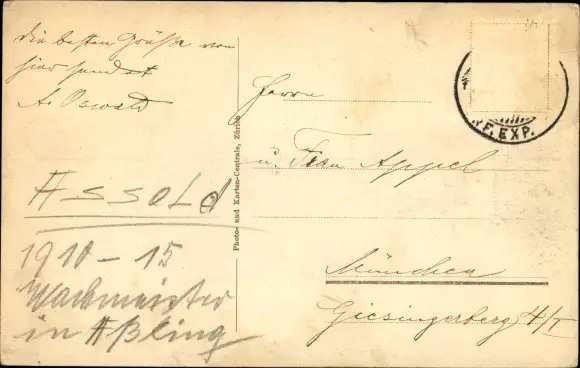 die besten Grüße von
hier sendet
A. Oswald
Assold
1910 - 15
Wachmeister
in Aßling
Photo- und Karten-Centrale, Zürich
F. EXP.
Herrn
u. Frau Appel
München
Giesingerberg 4/I